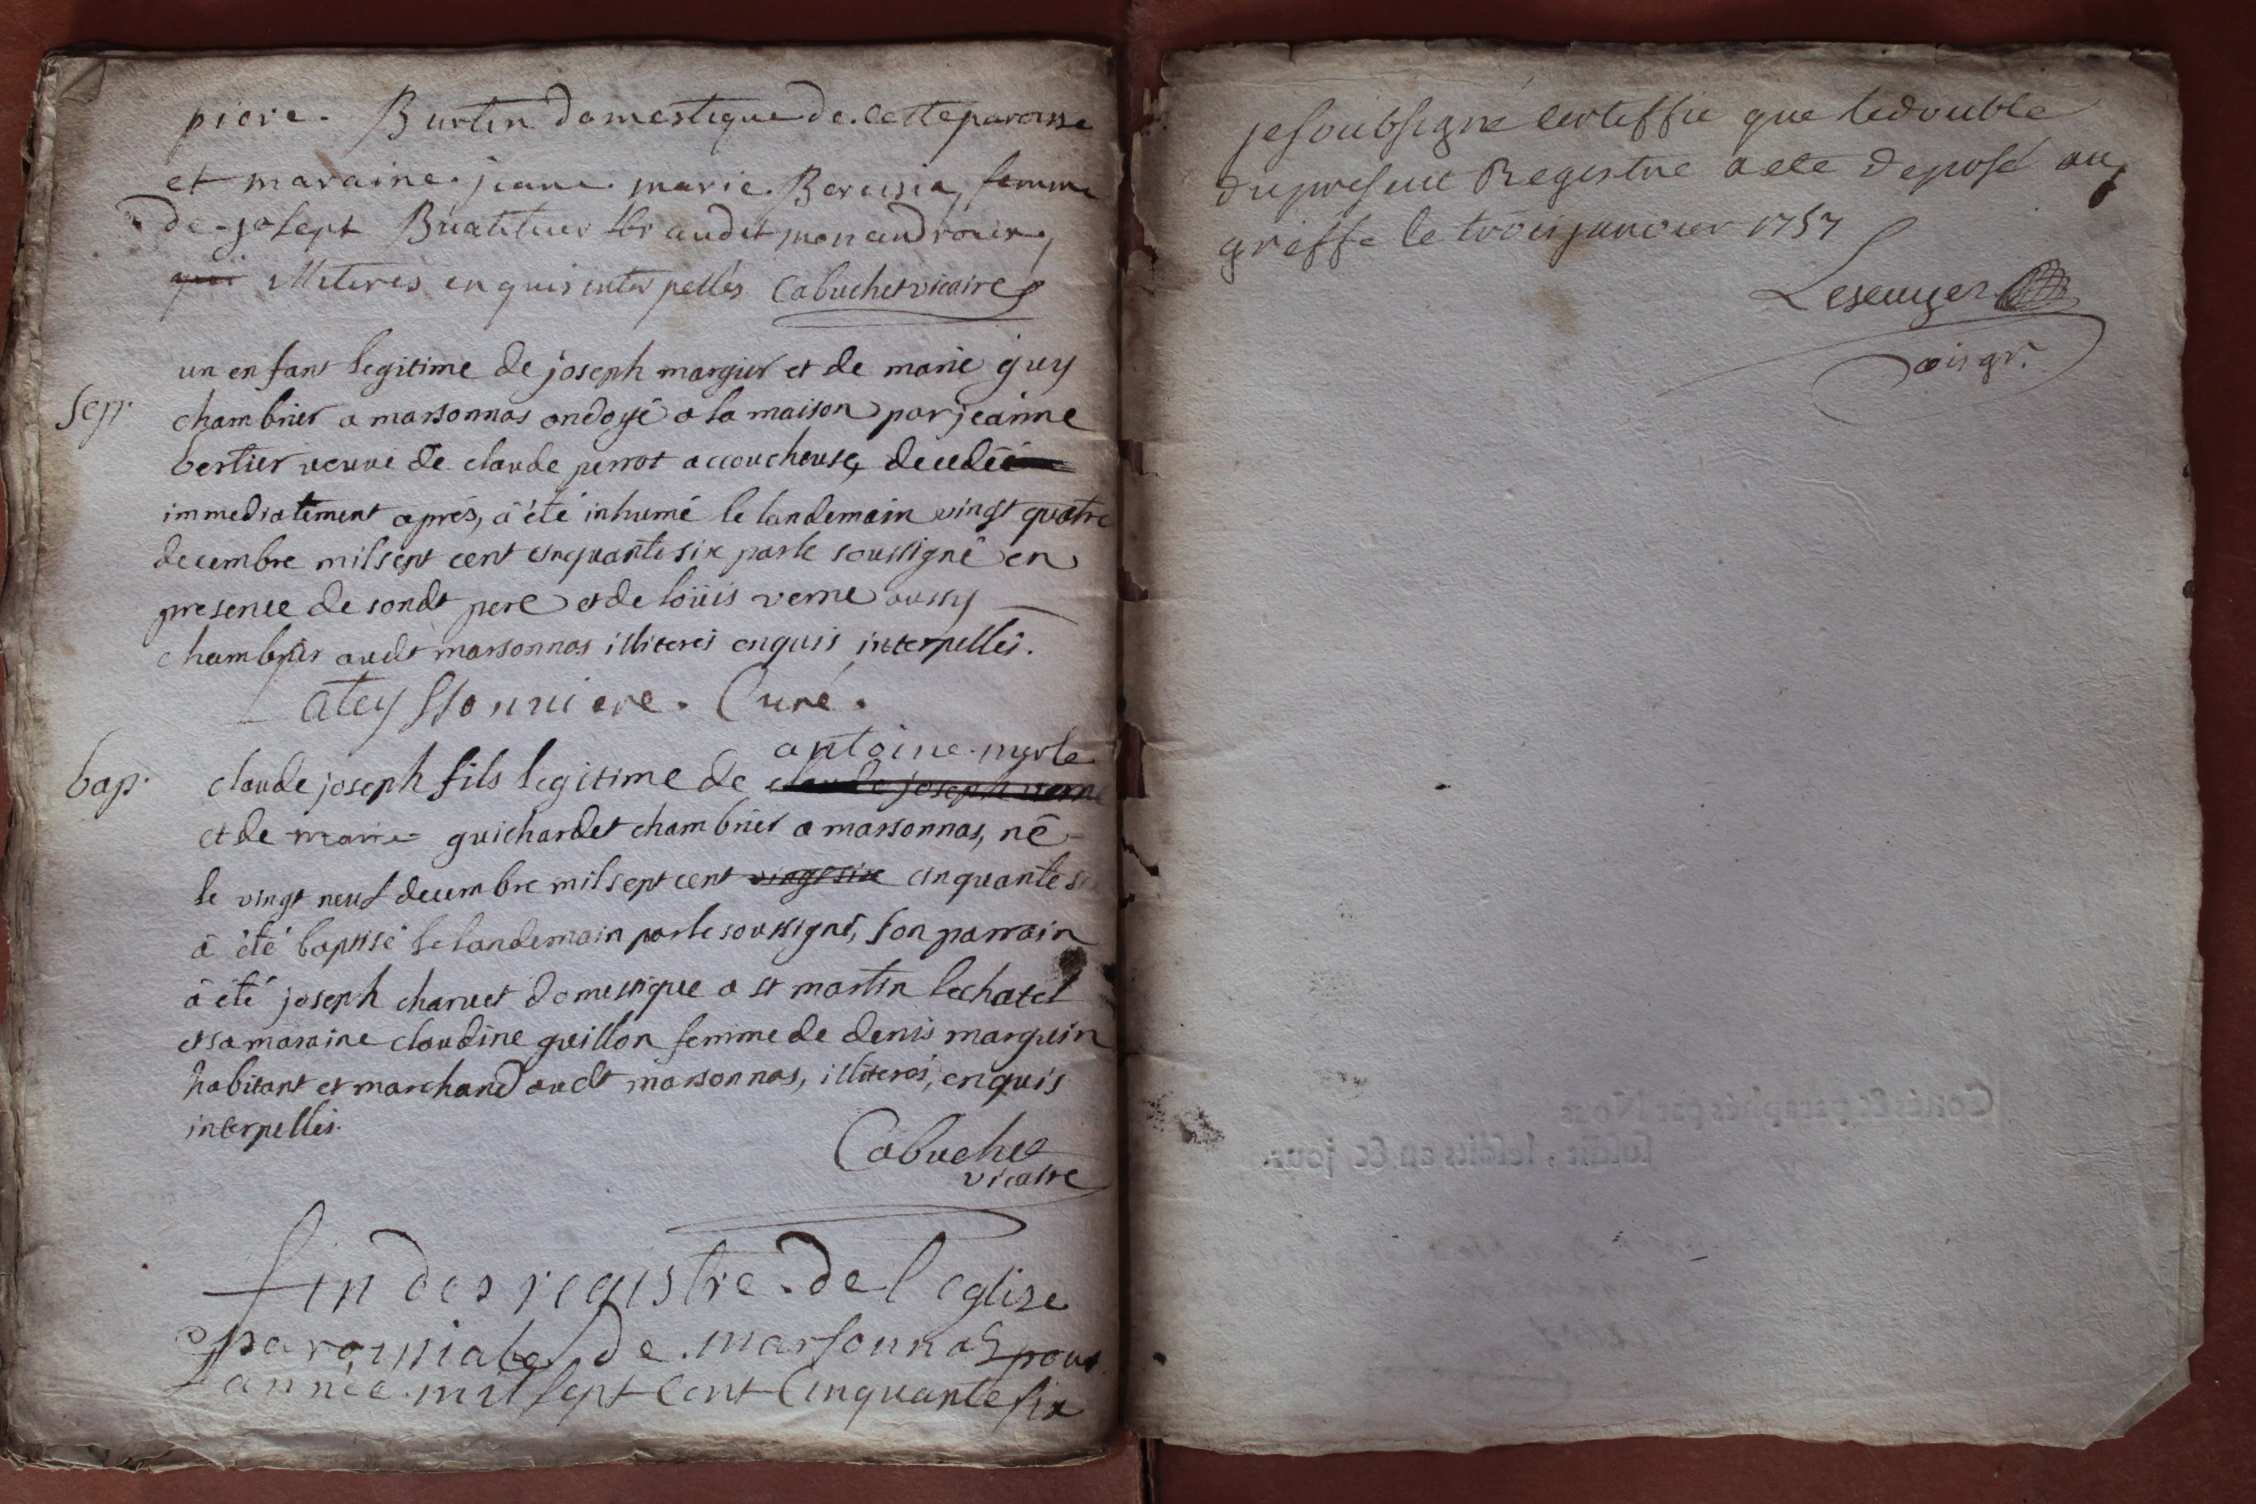 piere. Burtin domestique de cette paroisse
et maraine. jeane. marie. femme
de josept audit
qui illiteres enquis interpellés Cabuchet vicaire
un enfant legitime de joseph margier et de marie guy
Sep.
chambrier a marsonnas ondoyé a la maison par jeanne
bertier veuve de claude perrot accoucheuse, decedé
immediatement aprés, â été inhumé le landemain vingt quatre
decembre mil sept cent cinquante six par le soussigné en
presence de sondt pere et de loüis verne aussy
chambrier audt marsonnas illiteres enquis interpellés.
Lateyssonniere. Curé.
antoine. myrle
bap.
claude joseph fils legitime de claude joseph verne
et de marie guichardet chambrier a marsonnas, né
le vingt neuf decembre mil sept cent vingt six cinquante six
â été baptisé le landemain par le soussigné, son parrain
â été joseph charvet domestique a st martin lechatel
et sa maraine claudine guillon femme de denis marguin
habitant et marchand audt marsonnas, illiteres, enquis
interpellés.
Cabuchet
vicaire
fin des registre. de l eglise
paroissiale de. marsonnas pour
l année. mil sept Cent Cinquante six
je soubsigné certiffie que ledouble
du present Registre a ete deposé au
greffe le trois janvier 1757
Cottés & paraphés par Nous
susdit, lesdits an & jour.